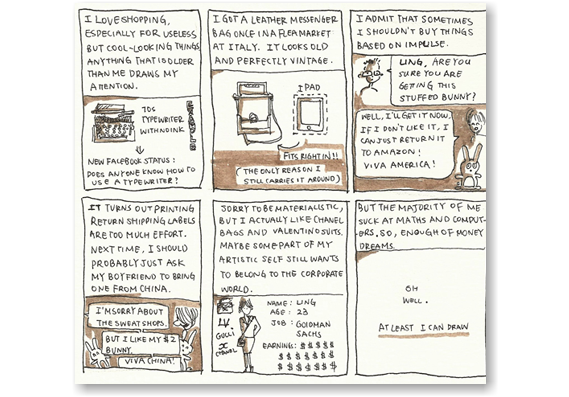 I LOVE SHOPPING,
ESPECIALLY FOR USELESS
BUT COOL-LOOKING THINGS
ANYTHING THAT IS OLDER
THAN ME DRAWS MY
ATTENTION.
70s
TYPEWRITER
WITH NO INK
NEW FACEBOOK STATUS:
DOES ANYONE KNOW HOW TO
USE A TYPEWRITER?
I GOT A LEATHER MESSENGER
BAG ONCE IN A FLEA MARKET
AT ITALY. IT LOOKS OLD
AND PERFECTLY VINTAGE.
IPAD
FITS RIGHT IN!!
(THE ONLY REASON I
STILL CARRIES IT AROUND)
I ADMIT THAT SOMETIMES
I SHOULDN'T BUY THINGS
BASED ON IMPULSE.
LING, ARE YOU
SURE YOU ARE
GETING THIS
STUFFED BUNNY?
WELL, I'LL GET IT NOW.
IF I DON'T LIKE IT, I
CAN JUST RETURN IT
TO AMAZON!
VIVA AMERICA!
IT TURNS OUT PRINTING
RETURN SHIPPING LABELS
ARE TOO MUCH EFFORT.
NEXT TIME, I SHOULD
PROBABLY JUST ASK
MY BOYFRIEND TO BRING
ONE FROM CHINA.
I'M SORRY ABOUT
THE SWEATSHOPS.
BUT I LIKE MY $2
BUNNY.
VIVA CHINA!
SORRY TO BE MATERIALISTIC,
BUT I ACTUALLY LIKE CHANEL
BAGS AND VALENTINO SUITS.
MAYBE SOME PART OF MY
ARTISTIC SELF STILL WANTS
TO BELONG TO THE CORPORATE
WORLD.
LV.
GUCCI
CHANEL
NAME: LING
AGE: 23
JOB: GOLDMAN
SACHS
EARNING: $$$$
$$$$$$$
$$$$$$$
BUT THE MAJORITY OF ME
SUCK AT MATHS AND COMPUT-
ERS. SO, ENOUGH OF MONEY
DREAMS.
OH
WELL.
AT LEAST I CAN DRAW